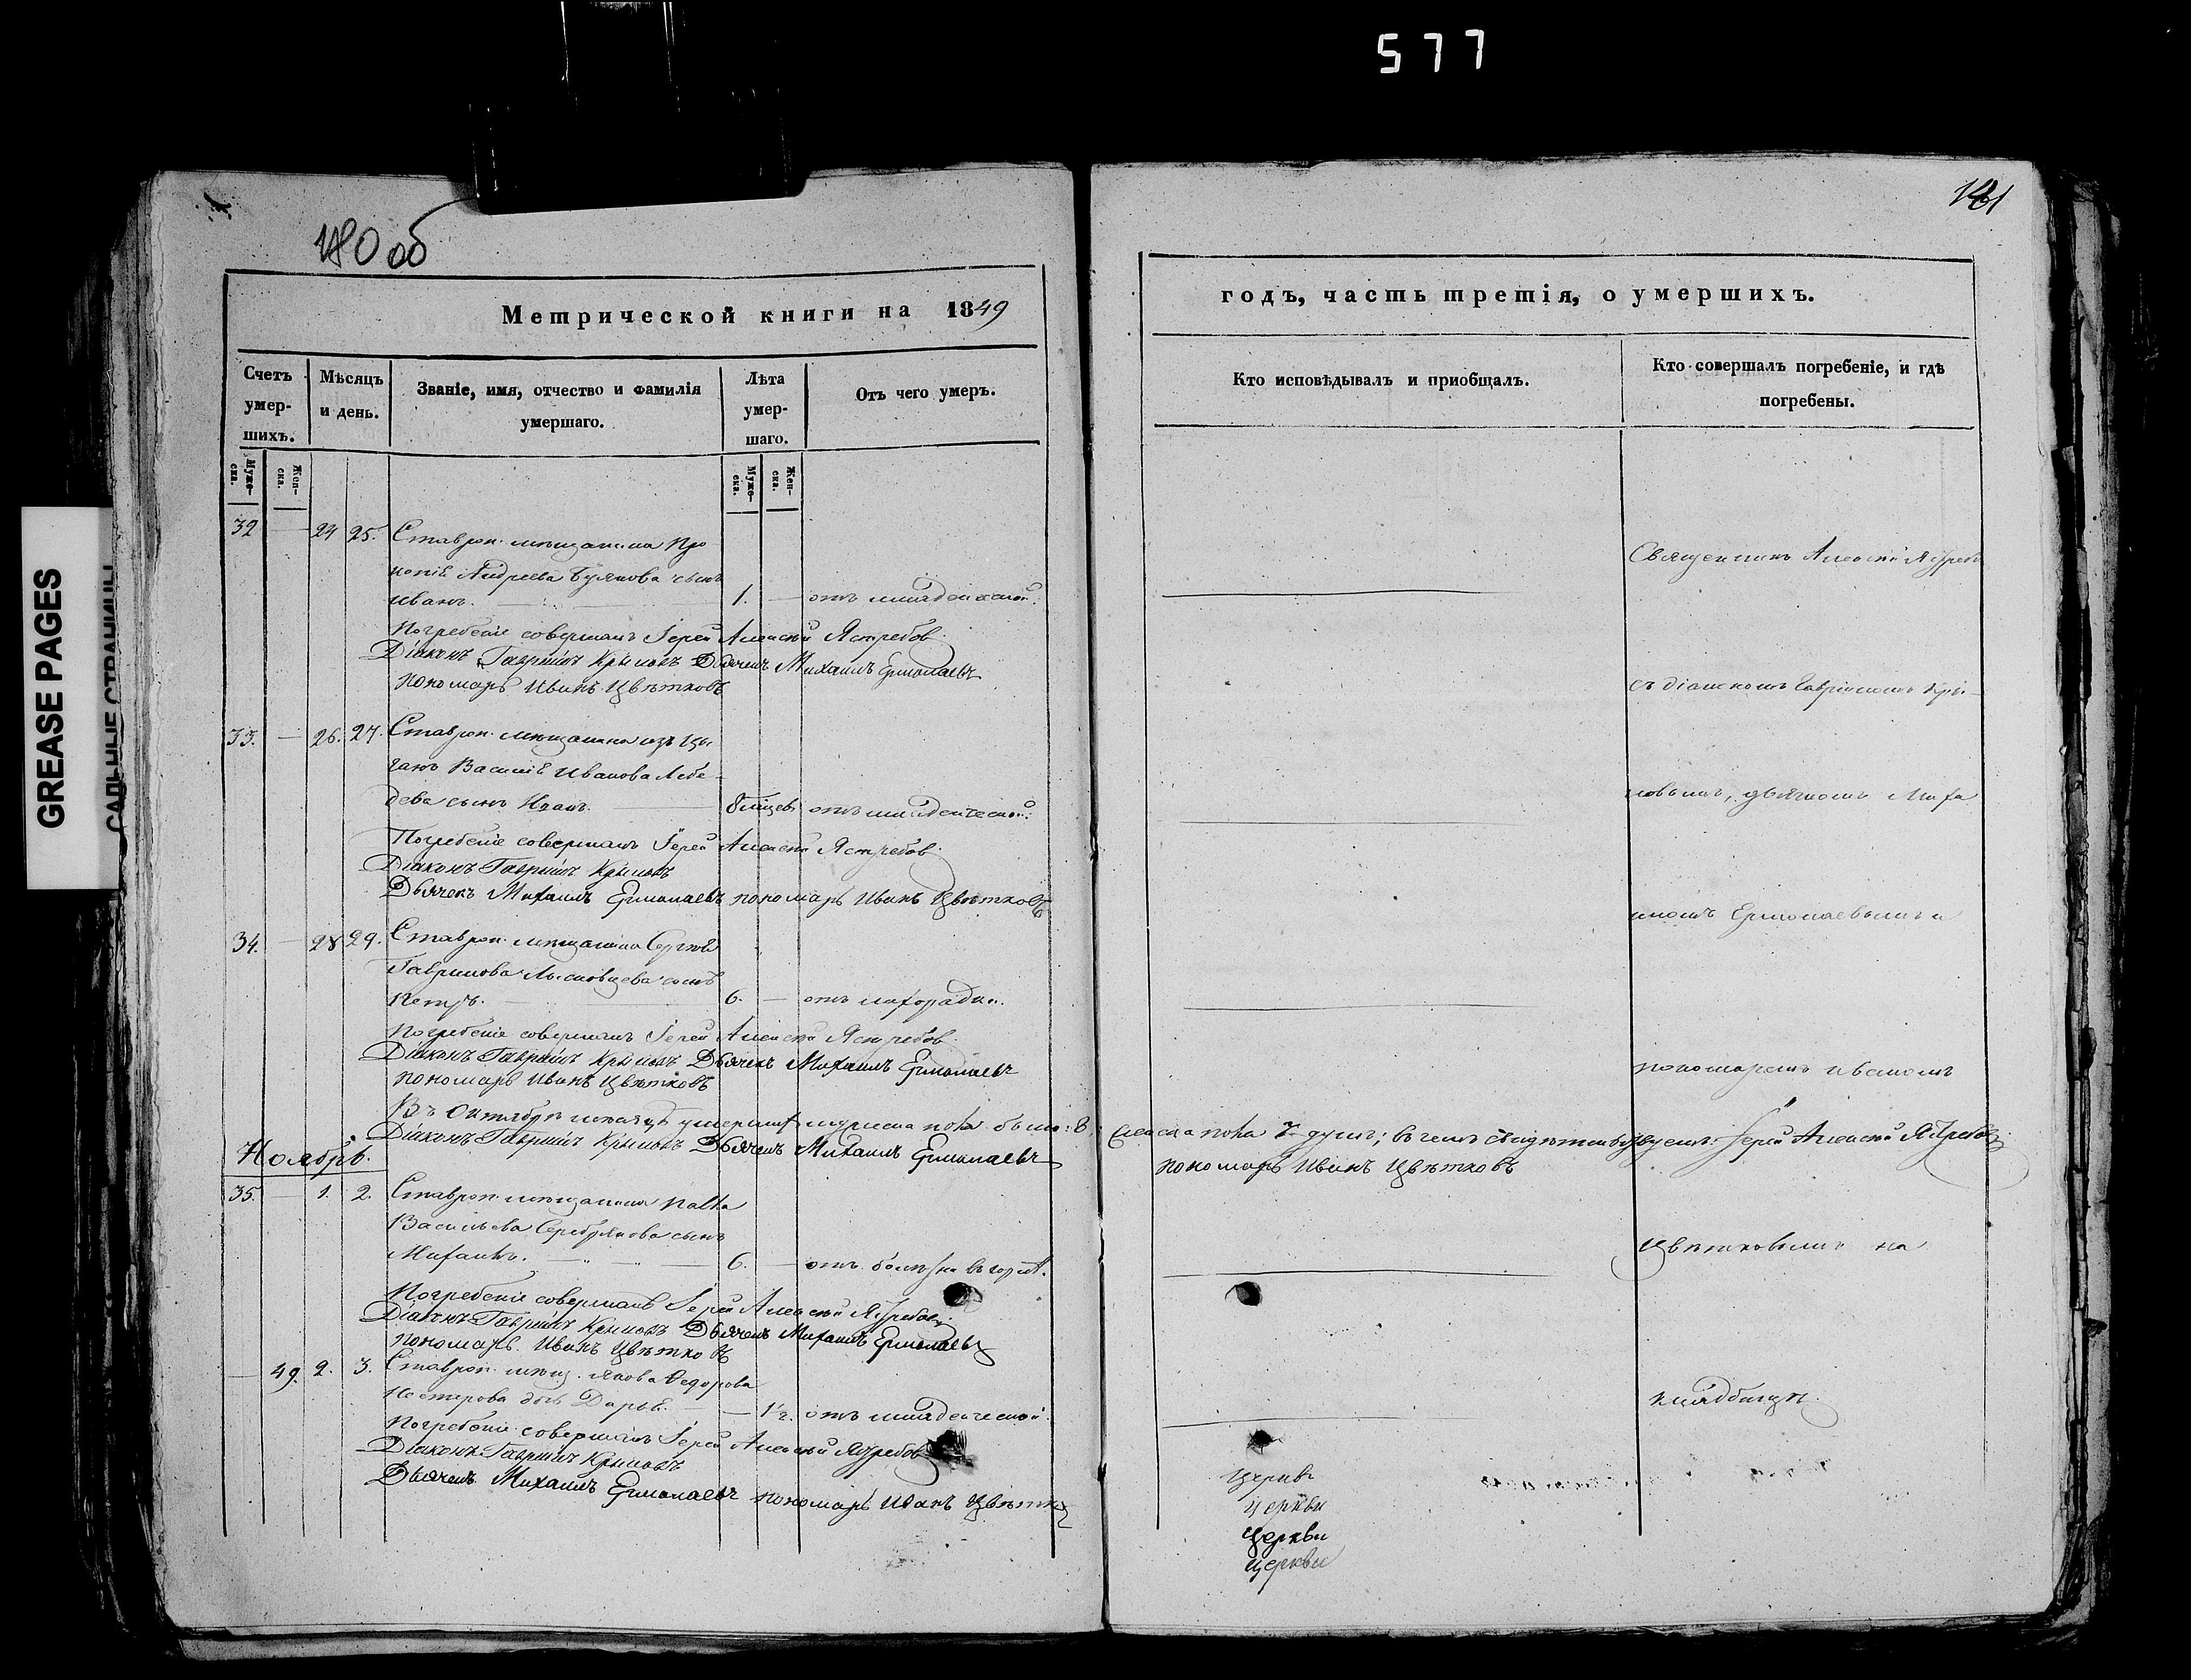 577
GREASE PAGES
САЛЬНЫЕ СТРАНИЦЫ
180 об
181
Метрической книги на 1849
годъ, часть третія, о умершихъ.
Счетъ умер-шихъ.
Мѣсяцъ и день.
Званіе, имя, отчество и фамилія умершаго.
Лѣта умер-шаго.
Отъ чего умеръ.
Кто исповѣдывалъ и пріобщалъ.
Кто совершалъ погребеніе, и гдѣ погребены.
Муже-ска.
Жен-ска.
Муже-ска.
Жен-ска.
32 — 24 25. Ставроп. мѣщанина Про
копія Андреева сынъ
Иванъ. 1. — отъ младенческой.
Погребеніе совершалъ Іерей Алексѣй Ястребов
Діаконъ Гавріилъ Крыловъ Дьячекъ Михаилъ Ермолаевъ
пономарь Иванъ Цвѣтковъ
33. — 26. 27. Ставроп. мѣщанина изъ Цы
ганъ Василія Иванова Лебе
дева сынъ отъ младенческой.
Погребеніе совершалъ Іерей Алексѣй Ястребов
Діаконъ Гавріилъ Крыловъ
Дьячекъ Михаилъ Ермолаевъ пономарь Иванъ Цвѣтковъ
34. — 28 29. Ставроп. мѣщанина Сергѣя
Гаврилова сынъ
Петръ. 6. — отъ лихорадки.
Погребеніе совершалъ Іерей Алексѣй Ястребов
Діаконъ Гавріилъ Крыловъ Дьячекъ Михаилъ Ермолаевъ
пономарь Иванъ Цвѣтковъ
Въ Октябрѣ мѣсяцѣ умершихъ мужеска пола было: 8, женска пола душъ; въ чемъ свидѣтельствуемъ: Іерей Алексѣй Ястребов
Діаконъ Гавріилъ Крыловъ Дьячекъ Михаилъ Ермолаевъ пономарь Иванъ Цвѣтковъ
Ноябрь.
35. — 1. 2. Ставроп. мѣщанина Павла
Васильева Серебрякова сынъ
Михаилъ. 6. — отъ болѣзни въ горлѣ.
Погребеніе совершалъ Іерей Алексѣй Ястребов
Діаконъ Гавріилъ Крыловъ Дьячекъ Михаилъ Ермолаевъ
пономарь Иванъ Цвѣтковъ
— 49. 2. 3. Ставроп. мѣщ. Якова Федорова
Нестерова дочь Дарья. — 1½. отъ младенческой.
Погребеніе совершалъ Іерей Алексѣй Ястребов
Діаконъ Гавріилъ Крыловъ
Дьячекъ Михаилъ Ермолаевъ пономарь Иванъ Цвѣтков
Священникъ Алексѣй Ястребов
съ діакономъ Гавріиломъ Кры-
ловымъ, дьячкомъ Миха
иломъ Ермолаевымъ и
пономаремъ Иваномъ
Цвѣтковымъ на
кладбищѣ.
Церкви
Церкви
Церкви
Церкви